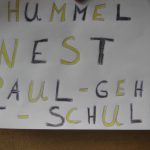 HUMMEL
NEST
PAUL-GEH
-SCHUL